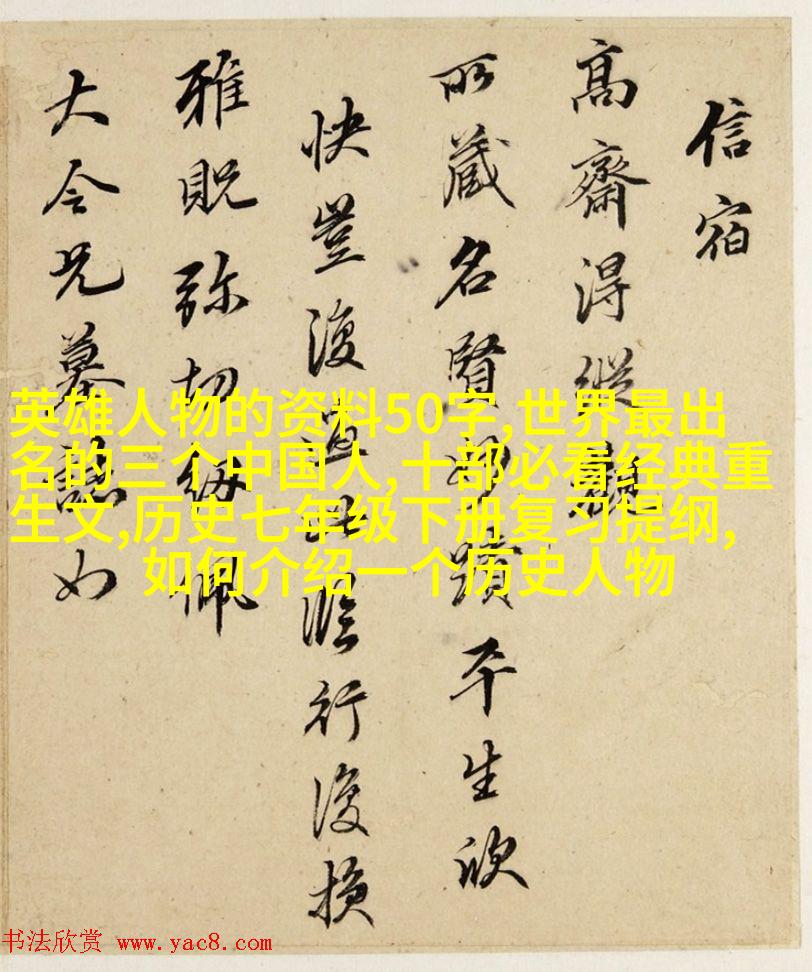 信宿
高齋得縱觀
所藏名賢妙蹟平生欣
快豈復過此臨行復損
雅貺弥切銘佩
大令兄墓誌如
英雄人物的资料50字,世界最出
名的三个中国人,十部必看经典重
生文,历史七年级下册复习提纲,
如何介绍一个历史人物
书法欣赏 www.yac8.com